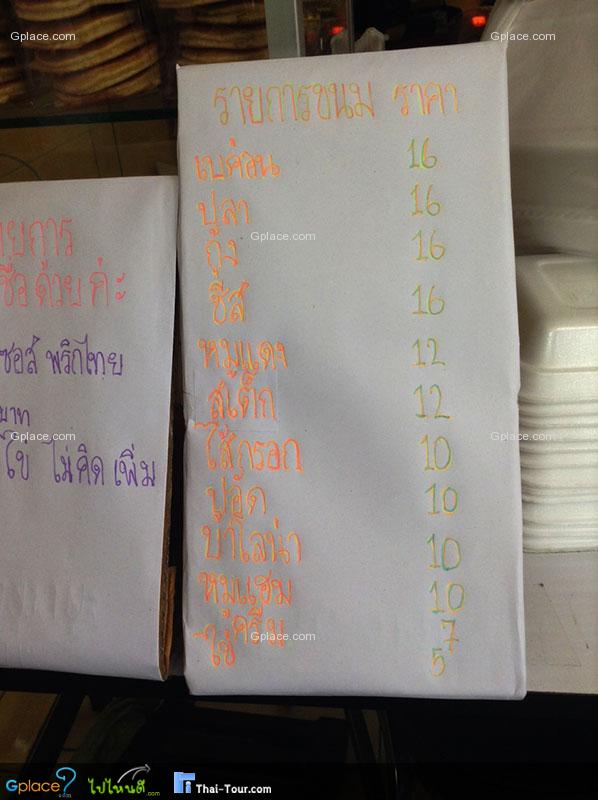 รายการขนม ราคา
เบค่อน 16
ปูลา 16
กุ้ง 16
ชีส 16
หมูแดง 12
สเต็ก 12
ไส้กรอก 10
ปูอัด 10
บาโลน่า 10
หมูแฮม 10
ครีม 7
ไข่ 5
ายการ
ชื่อด้วยค่ะ
ซอส พริกไทย
บาท
ไม่คิดเพิ่ม
Gplace.com
Gplace.com
Gplace.com
Gplace.com
Gplace.com
Gplace.com
Gplace.com
Gplace?.com ไปไหนดี.com Thai-Tour.com